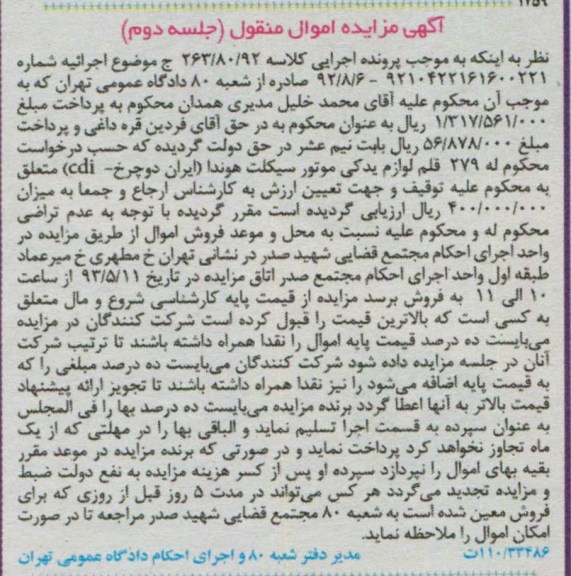 ۱۲۵۹
آگهی مزایده اموال منقول (جلسه دوم)
نظر به اینکه به موجب پرونده اجرایی کلاسه ۲۶۳/۸۰/۹۲ ج موضوع اجرائیه شماره
۹۲۱۰۴۲۲۱۶۱۶۰۰۲۲۱ - ۹۲/۸/۶ صادره از شعبه ۸۰ دادگاه عمومی تهران که به
موجب آن محکوم علیه آقای محمد خلیل مدیری همدان محکوم به پرداخت مبلغ
۱/۳۱۷/۵۶۱/۰۰۰ ریال به عنوان محکوم به در حق آقای فردین قره داغی و پرداخت
مبلغ ۵۶/۸۷۸/۰۰۰ ریال بابت نیم عشر در حق دولت گردیده که حسب درخواست
محکوم له ۲۷۹ قلم لوازم یدکی موتور سیکلت هوندا (ایران دوچرخ- cdi) متعلق
به محکوم علیه توقیف و جهت تعیین ارزش به کارشناس ارجاع و جمعا به میزان
۴۰۰/۰۰۰/۰۰۰ ریال ارزیابی گردیده است مقرر گردیده با توجه به عدم تراضی
محکوم له و محکوم علیه نسبت به محل و موعد فروش اموال از طریق مزایده در
واحد اجرای احکام مجتمع قضایی شهید صدر در نشانی تهران خ مطهری خ میرعماد
طبقه اول واحد اجرای احکام مجتمع صدر اتاق مزایده در تاریخ ۹۳/۵/۱۱ از ساعت
۱۰ الی ۱۱ به فروش برسد مزایده از قیمت پایه کارشناسی شروع و مال متعلق
به کسی است که بالاترین قیمت را قبول کرده است شرکت کنندگان در مزایده
می‌بایست ده درصد قیمت پایه اموال را نقدا همراه داشته باشند تا ترتیب شرکت
آنان در جلسه مزایده داده شود شرکت کنندگان می‌بایست ده درصد مبلغی را که
به قیمت پایه اضافه می‌شود را نیز نقدا همراه داشته باشند تا تجویز ارائه پیشنهاد
قیمت بالاتر به آنها اعطا گردد برنده مزایده می‌بایست ده درصد بها را فی المجلس
به عنوان سپرده به قسمت اجرا تسلیم نماید و الباقی بها را در مهلتی که از یک
ماه تجاوز نخواهد کرد پرداخت نماید و در صورتی که برنده مزایده در موعد مقرر
بقیه بهای اموال را نپردازد سپرده او پس از کسر هزینه مزایده به نفع دولت ضبط
و مزایده تجدید می‌گردد هر کس می‌تواند در مدت ۵ روز قبل از روزی که برای
فروش معین شده است به شعبه ۸۰ مجتمع قضایی شهید صدر مراجعه تا در صورت
امکان اموال را ملاحظه نماید.
۱۱۰/۳۳۴۸۶ت مدیر دفتر شعبه ۸۰ و اجرای احکام دادگاه عمومی تهران